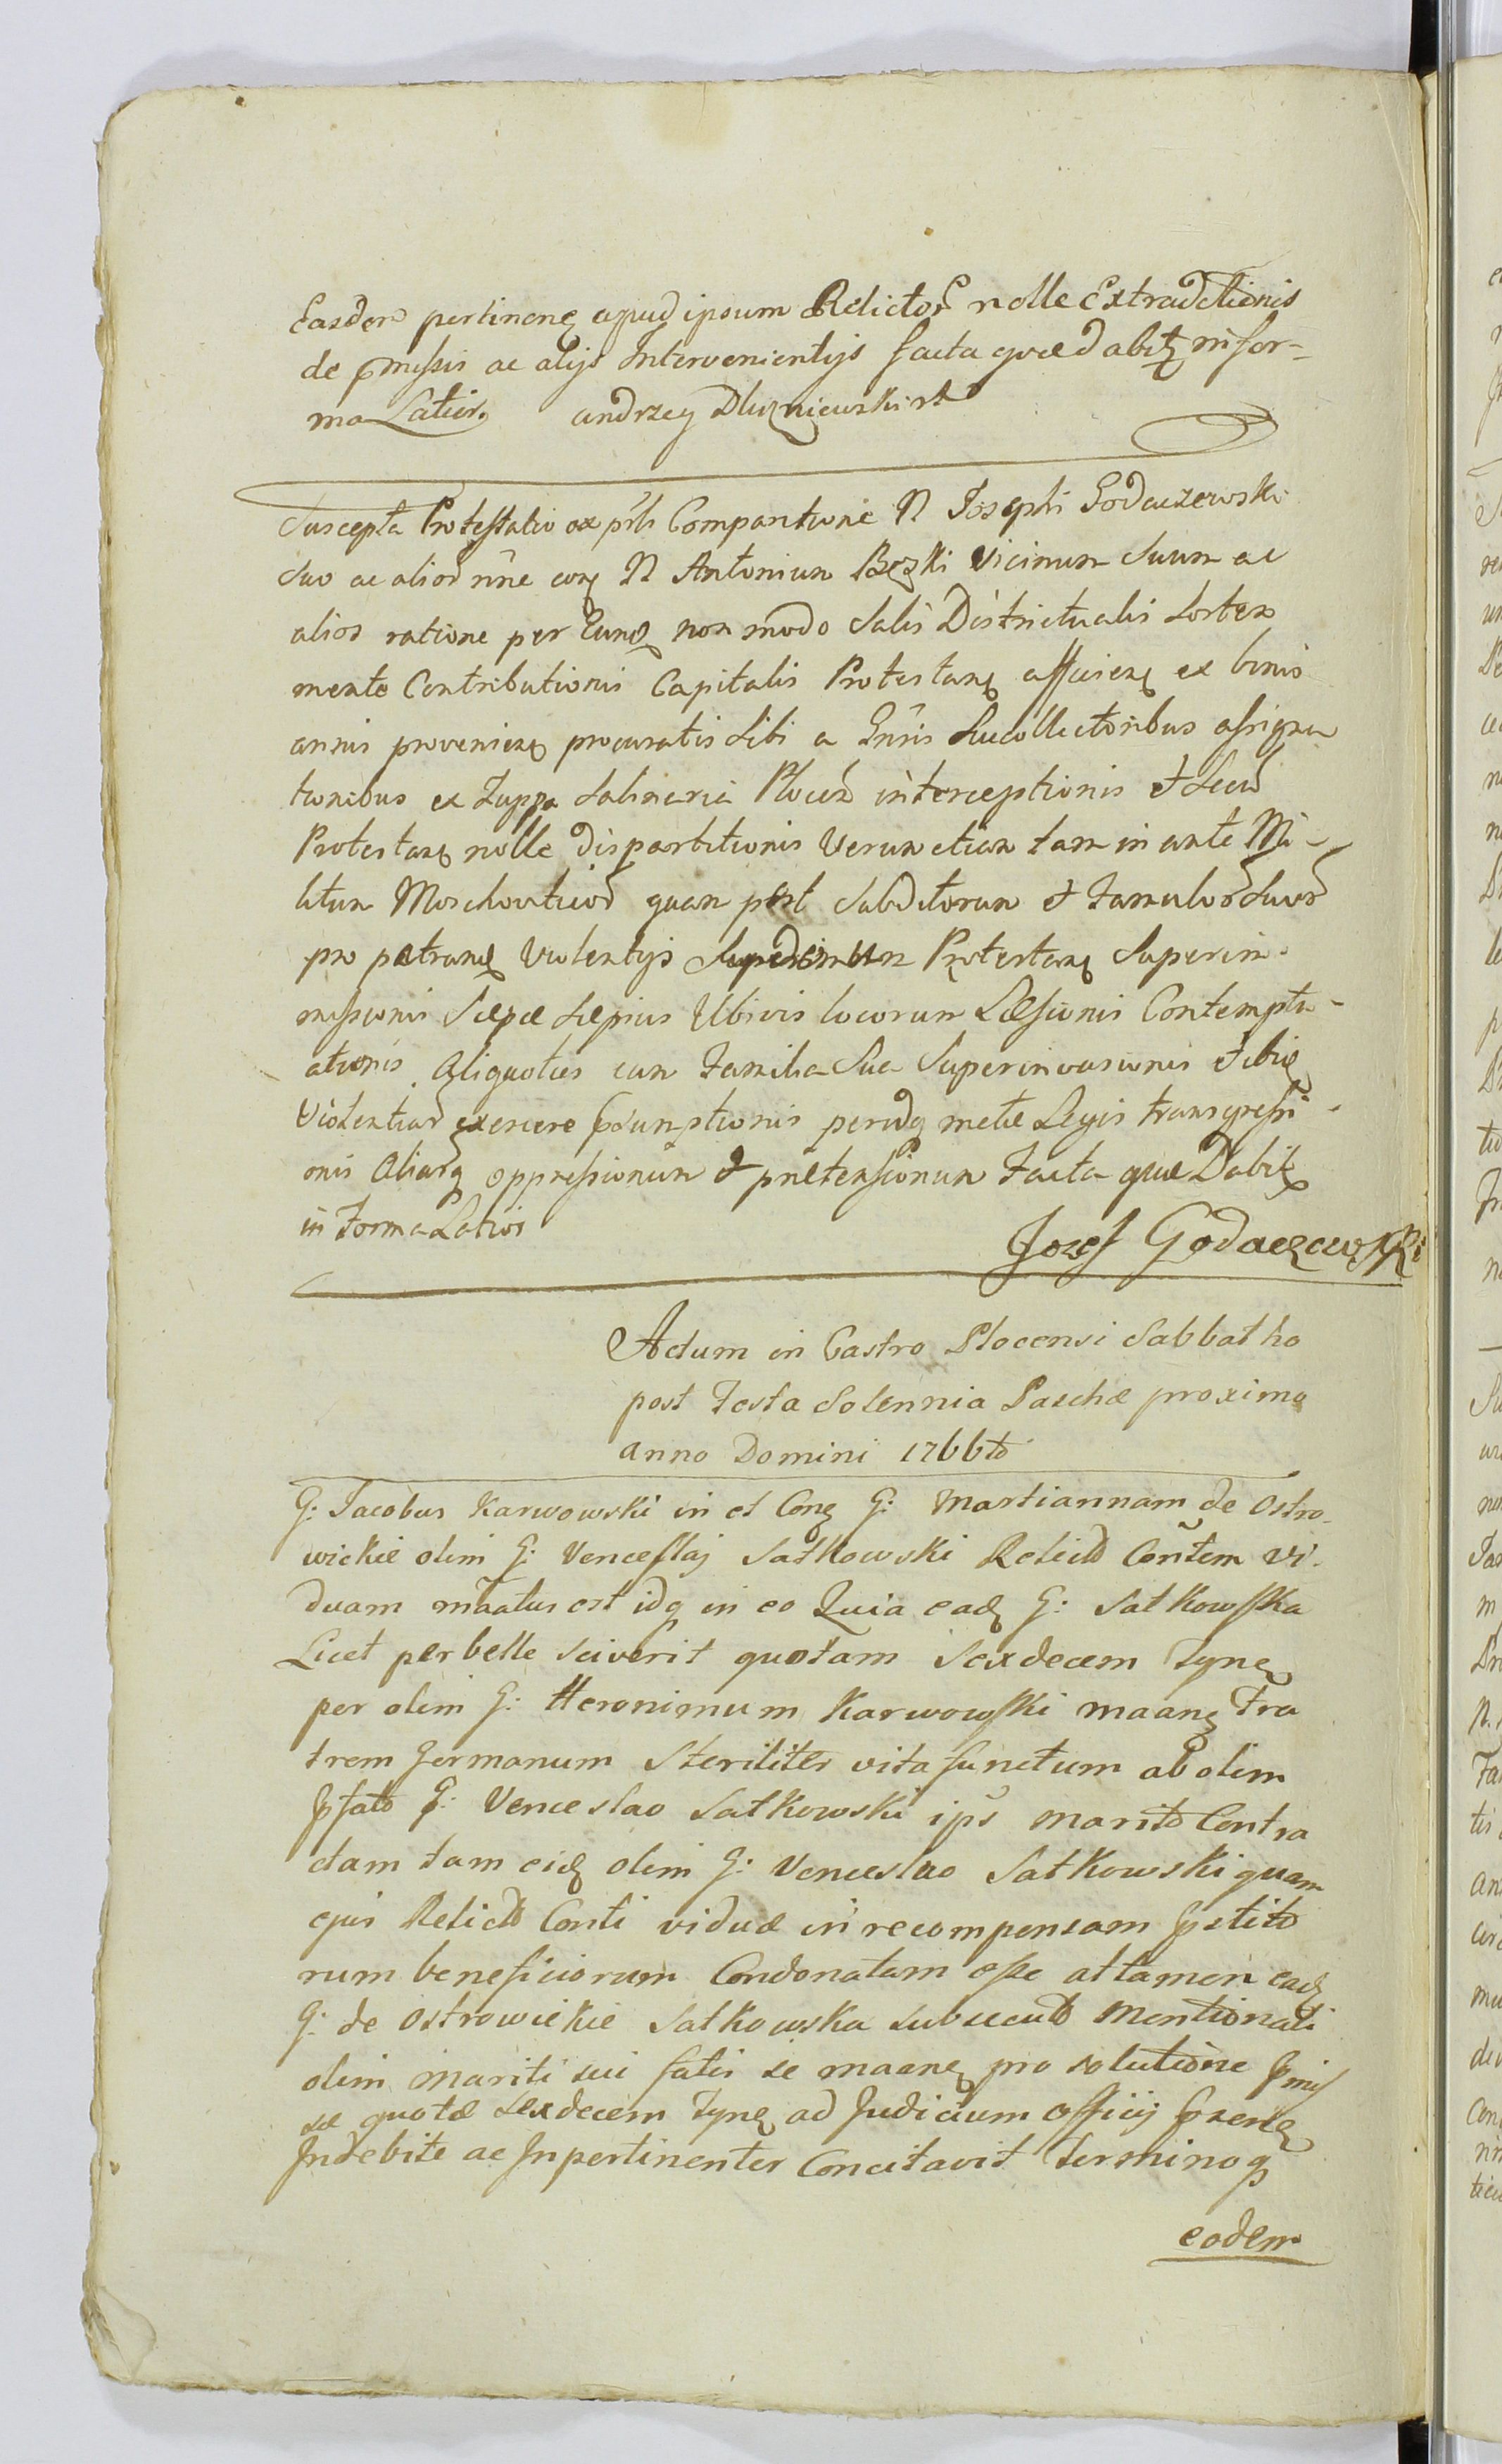 Easdem pertinenē apud ipsum Relictor nolle Extraditionis
de pmissis ac alijs Intervenientijs facta quæ dabitɀ in for-
ma Latior. andrzey Dłuzniewski
Suscepta Protestatio ex prsli Comparitione N Josephi Godaczewski
Suo ac alior nñe con N Antonium Bęski Vicinum Suum ac
alios ratione per Eund non modo Salis Districtualis Sortem
mente Contributionis Capitalis Protestan afficien ex binis
annis provenien procuratis Sibi a Gnris Succollectoribus assigna
tionibus ex Zuppa Salinaria Plocen interceptionis et Secū
Protestan nolle dispartitionis Verum etiam tam in ante Mi-
litum Moschoviticor quam post Subditorum et Famulor Suor
pro patran Violentijs Protestan Superim
missionis Sæpe Sæpius Ubivis locorum Læsionis Contemptu-
ationis Aliquoties cum Familia Sua Superinvasionis et ibi
Violentias exercere psumptionis peridq metæ Legis transgressi-
onis Aliarq oppressionum & prætensionum Facta quæ Dabitɀ
in Forma Latiori
Jozef Godaczewski
Actum in Castro Plocensi Sabbatho
post Festa Solennia Paschæ proximo
anno Domini 1766to
G: Jacobus Karwowski in et Con G: Martiannam de Ostro-
wickie olim G: Venceslaj Satkowski Relictā Cõntem vi-
duam mãatus est idq in eo Quia ead G: Satkowska
Licet perbelle sciverit quotam Sexdecem Tyn
per olim G: Heronimum Karwowski maan Fra
trem Germanum Steriliter vita functum ab olim
pfato G: Venceslao Satkowski ips marito Contra
ctam tam eid olim G: Venceslao Satkowski quam
ejus Relictæ Conti viduæ in recompensam pstito
rum beneficiorum Condonatam esse attamen ead
G: de Ostrowickie Satkowska subsecuto Mentionati
olim Mariti sui fatis se maan pro solutione pmis
sæ quotæ sexdecem Tyn ad Judicium officij psen
Indebite ac Inpertinenter Concitavit Terminoq
eodem